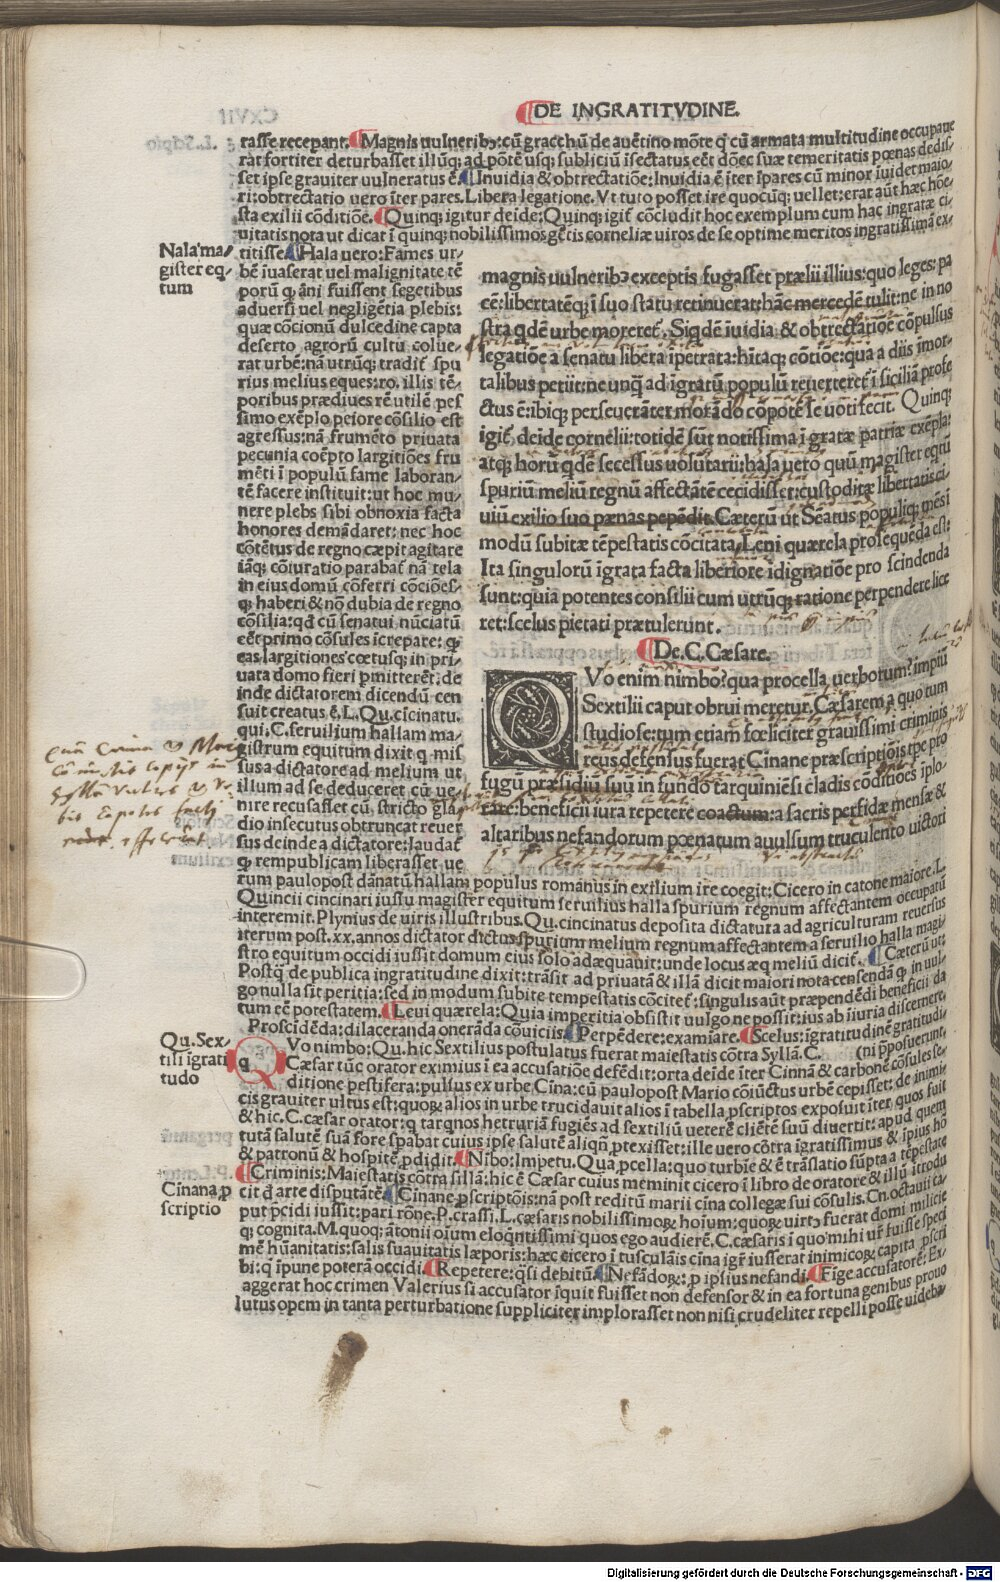 DE INGRATITVDINE.
rasse recepant. Magnis uulneribꝫ: cū gracchū de auētino mōte q cū armata multitudine occupaue
rat fortiter deturbasset illūqꝫ ad pōtē usqꝫ subliciū īsectatus eēt dōec suæ temeritatis pœnas dedis-
set ipse grauiter uulneratus ē. Inuidia & obtrectatiōe: Inuidia ē īter īpares cū minor īuidet maio-
ri: obtrectatio uero īter pares. Libera legatione. Vt tuto posset ire quocūqꝫ uellet: erat aūt hæc hōe-
sta exilii cōditiōe. Quinqꝫ igitur deide: Quinqꝫ igit̄ cōcludit hoc exemplum cum hac ingratæ ci-
uitatis nota ut dicat ī quinqꝫ nobilissimos gētis corneliæ uiros de se optime meritos ingratissimā ex-
Nala ma/
gister eq-
tum
titisse. Hala uero: Fames ur-
bē īuaserat uel malignitate tē
porū qꝫ āni fuissent segetibus
aduersi uel negligētia plebis:
quæ cōcionū dulcedine capta
deserto agrorū cultu colue-
rat urbē: na utrūqꝫ tradit̄ spu
rius melius eques: ro. illis tē-
poribus prædiues rē utilē pes
simo exēplo peiore cōsilio est
agressus: nā frumēto priuata
pecunia coēpto largitiōes fru
mēti ī populū fame laboran-
tē facere instituit: ut hoc mu-
nere plebs sibi obnoxia facta
honores demādaret: nec hoc
cōtētus de regno cœpit agitare
iāqꝫ cōiuratio parabat̄ nā tela
in eius domū cōferri cōciōes-
qꝫ haberi & nō dubia de regno
cōsilia: qd cū senatui nūciatū
eēt primo cōsules īcrepare: qꝫ
eas largitiones cœtusqꝫ in pri-
uata domo fieri pmitterēt: de
inde dictatorem dicendū cen
suit creatus ē. L. Qu. cicinatu.
qui. C. seruilium hallam ma-
gistrum equitum dixit q mis
sus a dictatore ad melium ut
illum ad se deduceret cū ue-
nire recusasset cū stricto gla
dio insecutus obtruncat reuer
sus deinde a dictatore: laudat̄
qꝫ rempublicam liberasset ue
magnis uulneribꝫ exceptis fugasset prælii illius: quo leges: pa
cē: libertatēqꝫ ī suo statu retinuerat: hāc mercedē tulit: ne in no
stra qdē urbe moreret̄. Siqdē īuidia & obtrectatiōe cōpulsus
legatiōe a senatu libera īpetrata: hītaqꝫ cōtiōe: qua a diis īmor-
talibus petiit: ne unqꝫ ad īgratū populū reuerteret̄ ī siciliā profe
ctus ē: ibiqꝫ perseuerāter morādo cōpotē se uoti fecit. Quinqꝫ
igit̄, deide cornelii: totidē sūt notissima ī gratæ patriæ exēpla:
atqꝫ horū qdē secessus uolūtarii: hala uero quū magister eqtū
spuriū meliū regnū affectātē cecidisset: custoditæ libertatis ci-
uiū exilio suo pœnas pepēdit. Cæterū ut Sēatus populiqꝫ mēs ī
modū subitæ tēpestatis cōcitata, Leni quærela prosequēda est:
Ita singulorū īgrata facta liberiore īdignatiōe pro scindenda
sunt: quia potentes consilii cum utrūqꝫ ratione perpendere lice
ret: scelus pietati prætulerunt.
De. C. Cæsare.
QVo enim nimbo? qua procella uerborum? impiū
Sextilii caput obrui meretur. Cæsarem a quo tum
studiose: tum etiam fœliciter grauissimi criminis
reus defensus fuerat Cinane præscriptiōis tpe pro
fugū præsidiū suū in fundo tarquiniēsi cladis cōditiōes īplo-
rare: beneficii iura repetere coactum: a sacris perfidæ mensæ &
altaribus nefandorum pœnatum auulsum truculento uictori
rum paulopost dānatū hallam populus romanus in exilium ire coegit: Cicero in catone maiore. L.
Quincii cincinari iussu magister equitum seruilius halla spurium regnum affectantem occupatū
interemit. Plynius de uiris illustribus. Qu. cincinatus deposita dictatura ad agriculturam reuersus
iterum post. xx. annos dictator dictus spurium melium regnum affectantem a seruilio halla magi
stro equitum occidi iussit domum eius solo adæquauit: unde locus æq meliū dicit̄. Cæterū ut:
Postqꝫ de publica ingratitudine dixit: trāsit ad priuatā & illā dicit maiori nota censendā qꝫ in uul-
go nulla sit peritia: sed in modum subite tempestatis cōcitet̄: singulis aūt præpendēdi beneficii da
tum eē potestatem. Leui quærela: Quia imperitia obsistit uulgo ne possit: ius ab iiuria discernere,
Proscīdēda: dilaceranda onerāda cōuiciis. Perpēdere: examiare. Scelus: īgratitudinē gratitudi-
Qu. Sex-
tili īgrati
tudo
QVo nimbo: Qu. hic Sextilius postulatus fuerat maiestatis cōtra Syllā. C. (ni pposuerunt,
Cæsar tūc orator eximius ī ea accusatiōe defēdit: orta deide īter Cinnā & carbonē cōsules se-
ditione pestifera: pulsus ex urbe Cīna: cū paulopost Mario cōiūctus urbē cepisset: de inimi-
cis grauiter ultus est: quoꝝ alios in urbe trucidauit alios ī tabella pscriptos exposuit īter, quos fuit
& hic. C. cæsar orator: q tarqnos hetruriā fugiēs ad sextiliū ueterē cliētē suū diuertit: apud quem
tutā salutē suā fore spabat cuius ipse salutē aliqn ptexisset: ille uero cōtra īgratissimus & īpius hō
& patronū & hospitē pdidit. Nibo: Impetu. Qua pcella: quo turbie & ē trāslatio sūpta a tēpestate
Criminis: Maiestatis cōtra sillā: hic ē Cæsar cuius meminit cicero ī libro de oratore & illū ītrodu
Cīnana p
scriptio
cit d arte disputātē. Cīnane pscriptōis: nā post reditū marii cīna collegæ sui cōsulis. Cn. octauii ca-
put pcidi iussit: pari rōne. P. crassi. L. cæsaris nobilissimoꝝ hoīum: quoꝝ uirtꝰ fuerat domi milicie
qꝫ cognita. M. quoqꝫ ātonii oium eloqntissimi quos ego audierē. C. cæsaris ī quo mihi ur̄ fuisse speci
mē hūanitatis: salis suauitatis læporis: hæc cicero ī tusculāis cīna igr̄ iusserat inimicoꝝ capita pscri
bi: q īpune poterā occidi. Repetere: qsi debitū. Nefādoꝝ: p ipsius nefandi. Fige accusatorē: Ex-
aggerat hoc crimen Valerius si accusator īquit fuisset non defensor & in ea fortuna genibus prouo
lutus opem in tanta perturbatione suppliciter implorasset non nisi crudeliter repelli posse uideba-
Digitalisierung gefördert durch die Deutsche Forschungsgemeinschaft - DFG